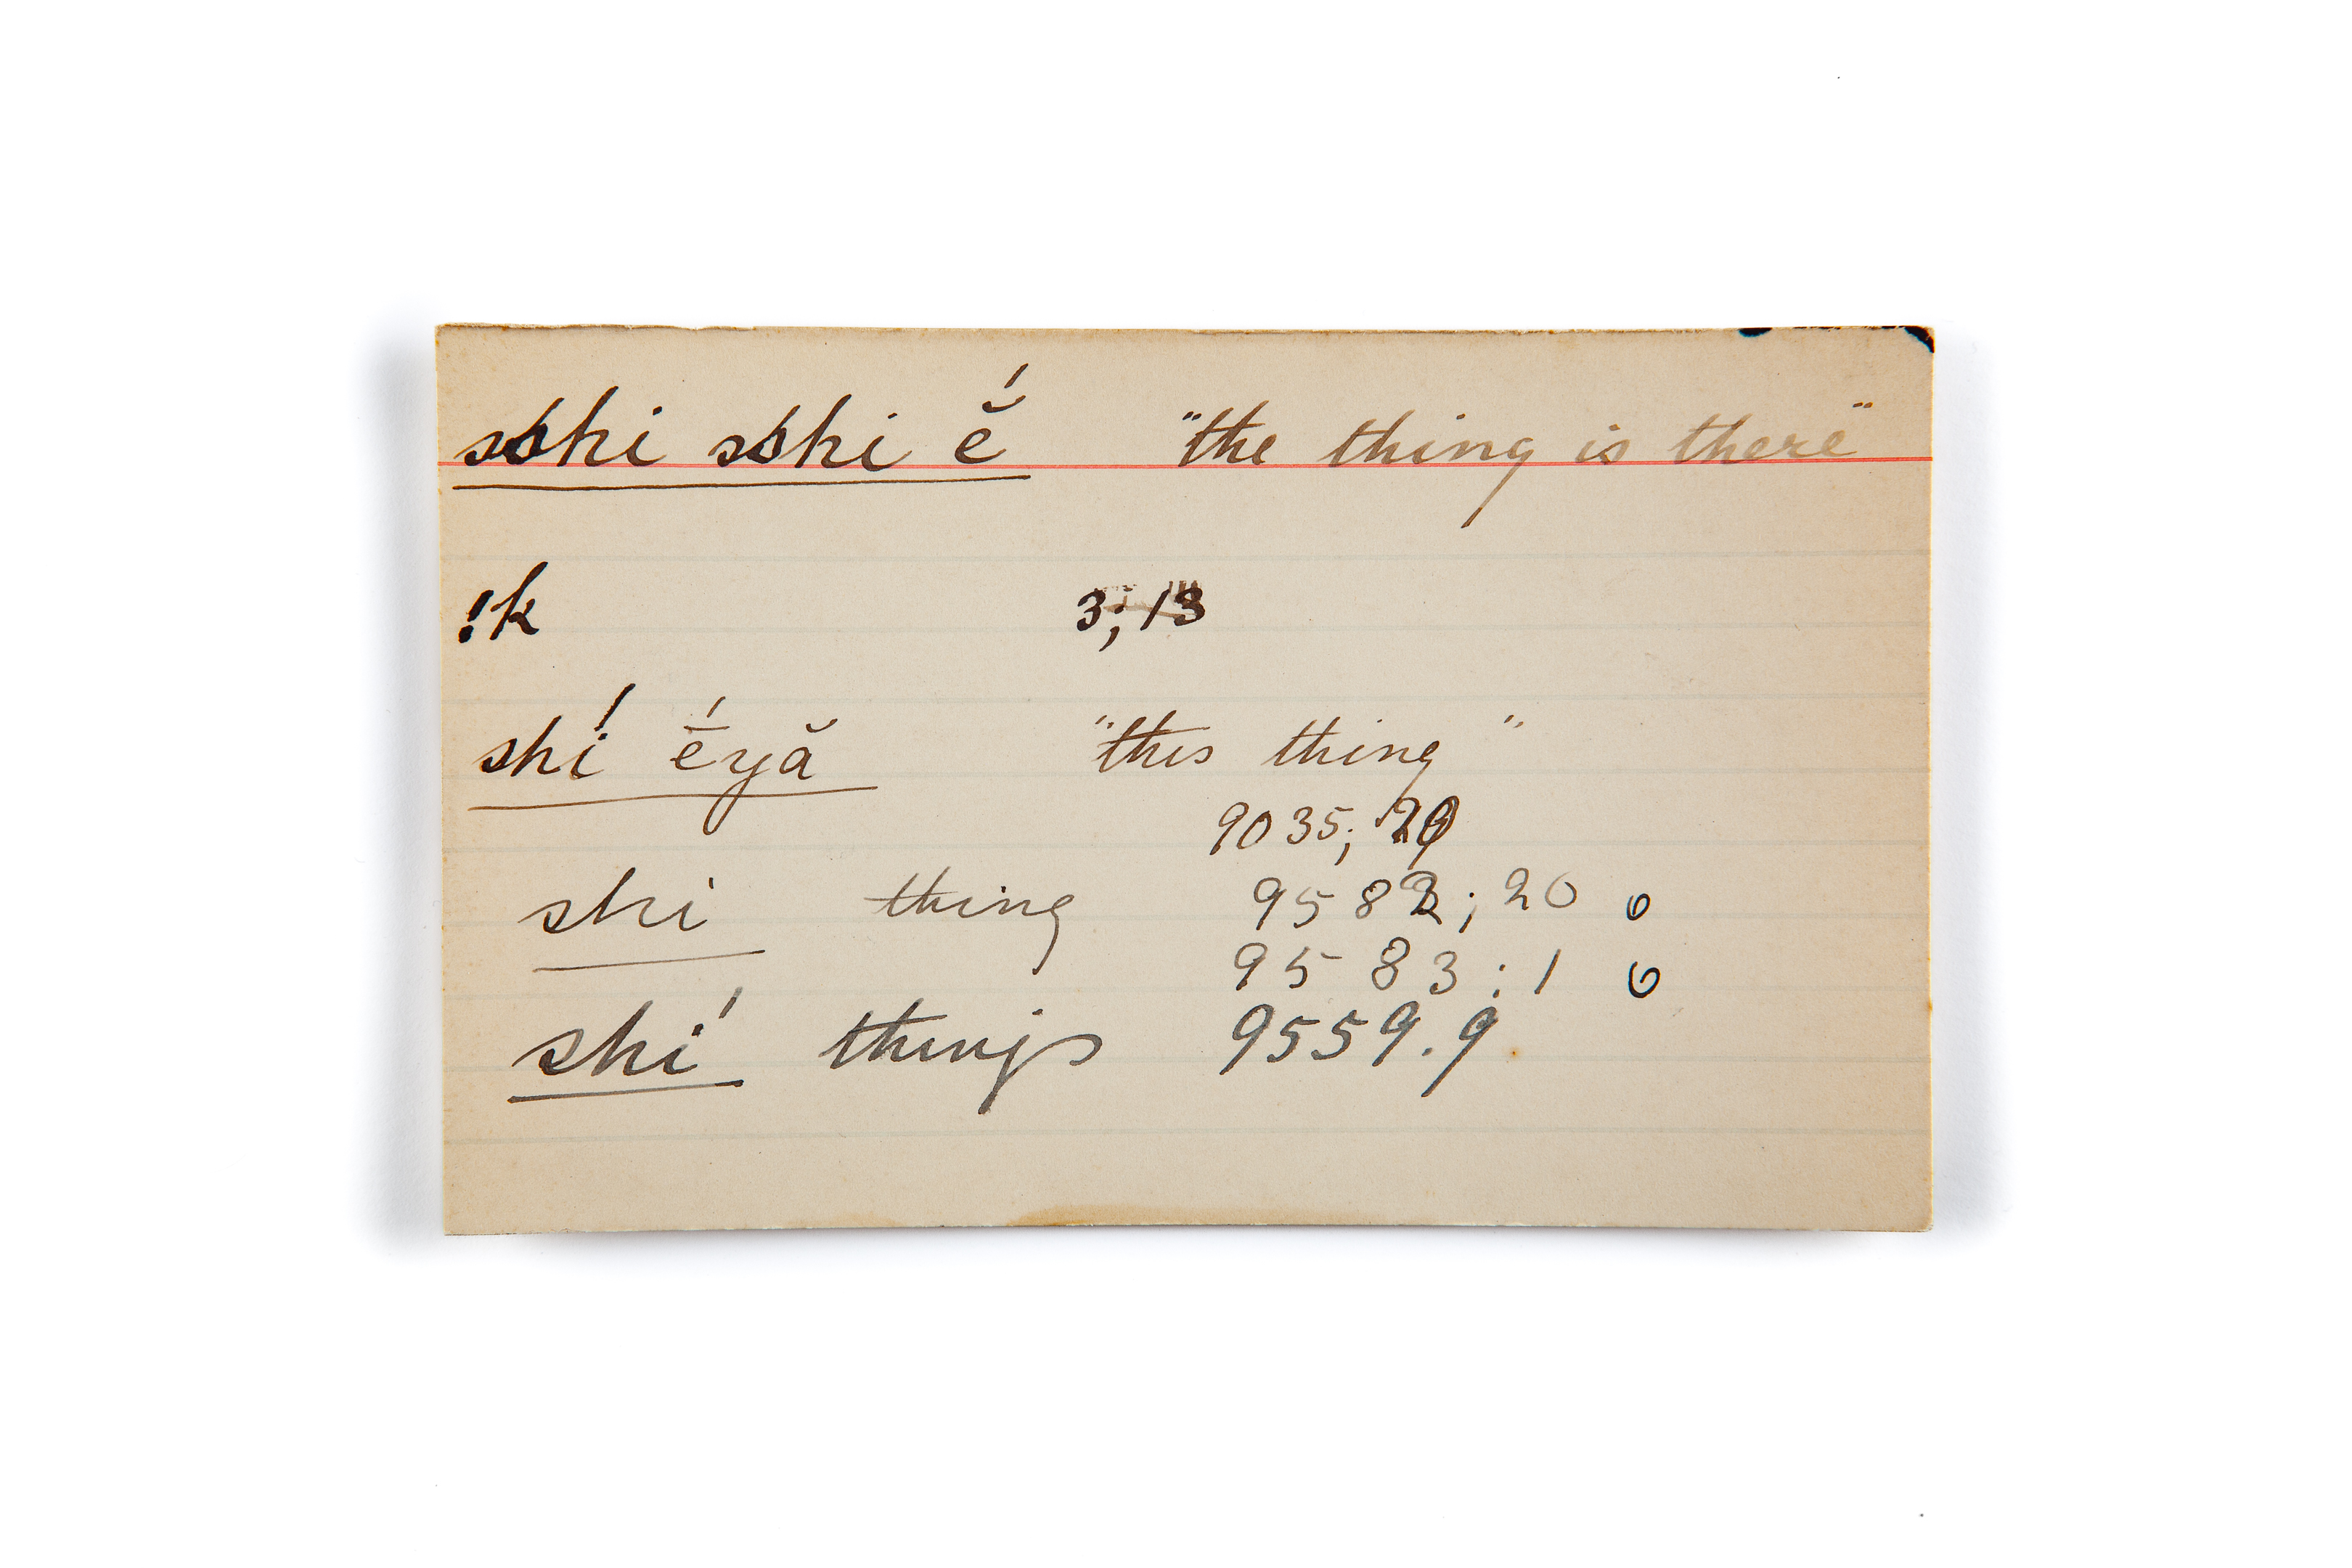 shi shi ĕ́ "the thing is there"
!k 3; 13
shí ḗyă "this thing"
9035; 29
shi thing 9582; 20 6
9583; 1 6
shí things 9559.9